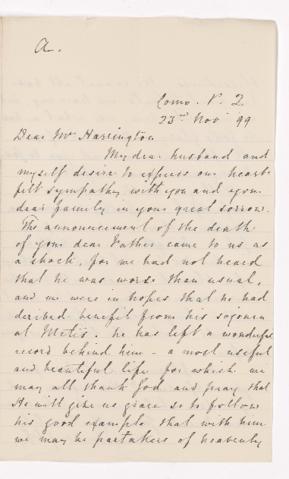 a.
Como. P. Q.
23rd Nov 99
Dear Mr Harrington
My dear husband and
myself desire to express our heart
felt sympathy with you and your
dear family in your great sorrow.
The announcement of the death
of your dear Father came to us as
a shock, for we had not heard
that he was worse than usual,
and we were in hopes that he had
derived benefit from his sojourn
at Metis. He has left a wonderful
record behind him - a most useful
and beautiful life for which we
may all thank God and pray that
He will give us grace so to follow
his good example that with him
we may be partakers of heavenly